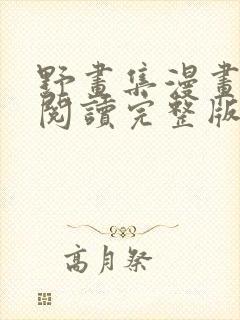 野畫集漫畫
閱讀完整版
高月祭